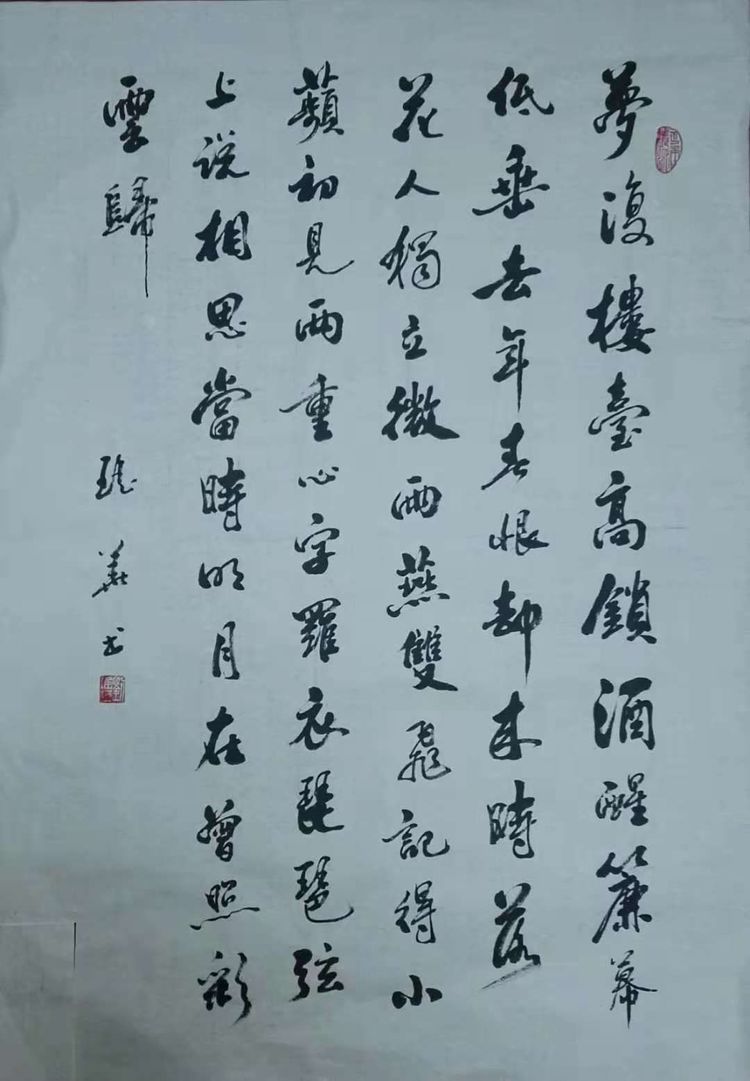 夢後樓臺高鎖酒醒簾幕
低垂去年春恨卻來時落
花人獨立微雨燕雙飛記得小
蘋初見兩重心字羅衣琵琶弦
上説相思當時明月在曾照彩
雲歸
书